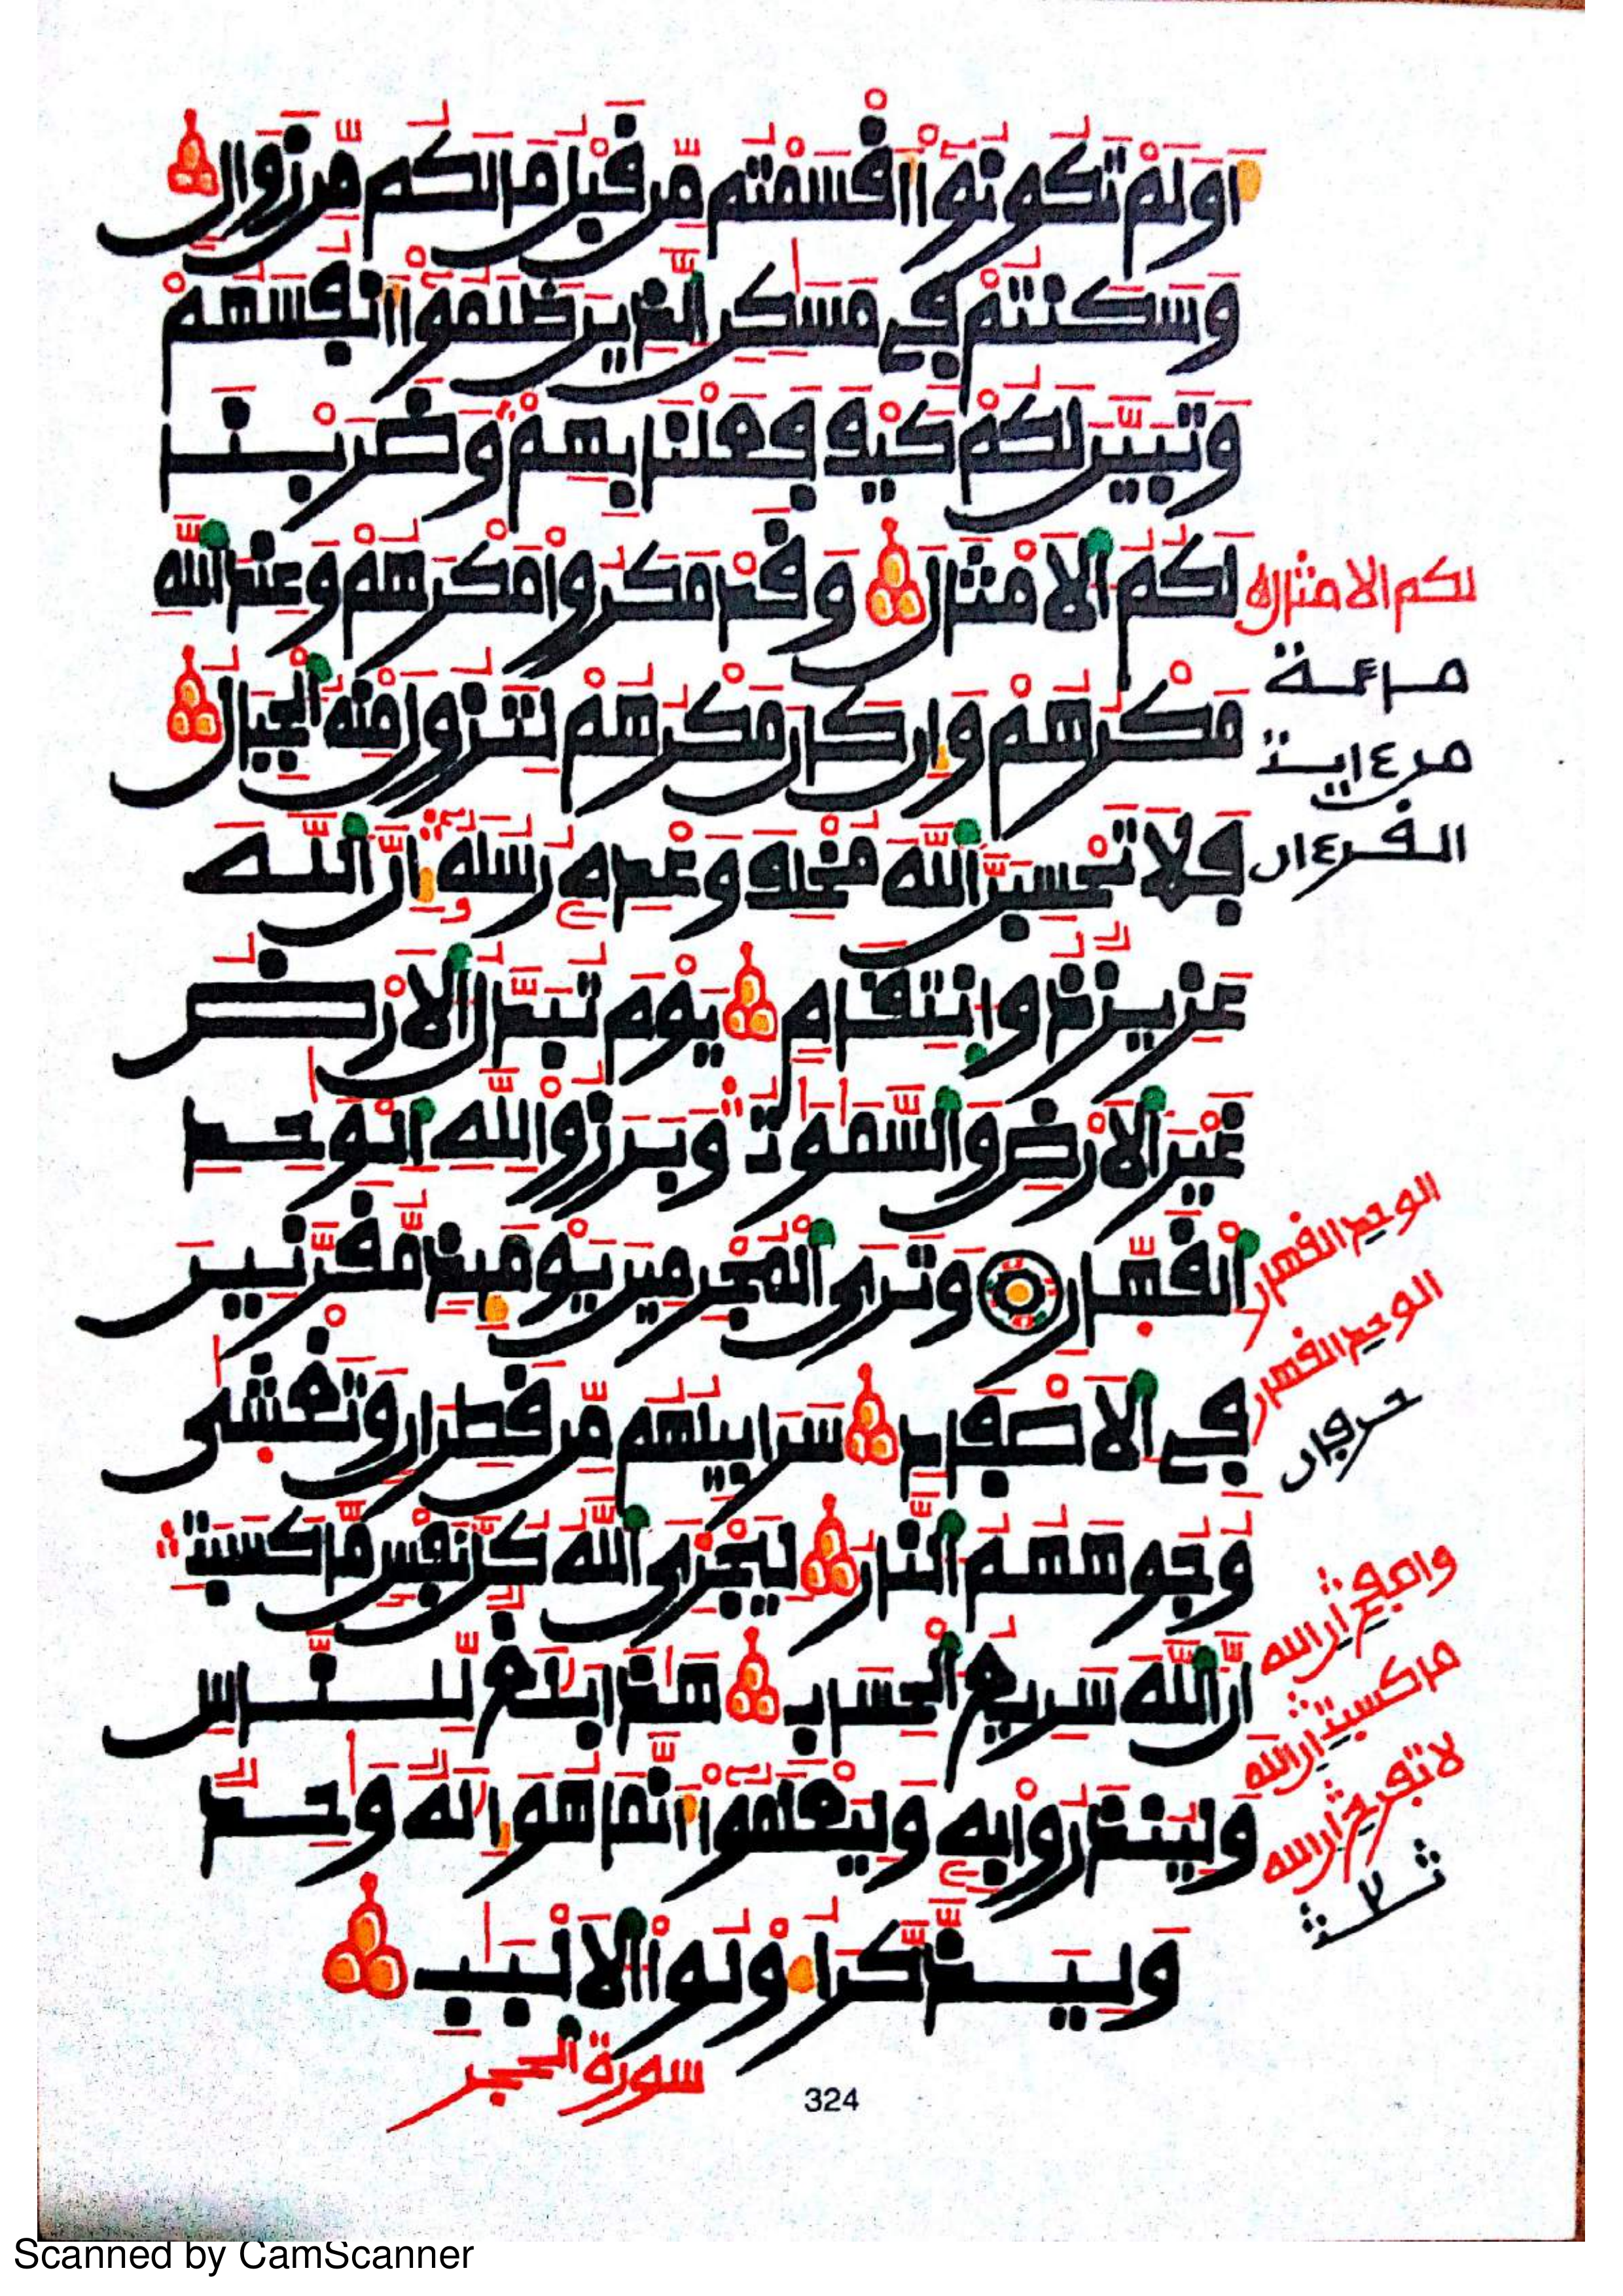 أَوَلَمْ تَكُونُوٓاْ أَقْسَمْتُم مِّن قَبْلُ مَا لَكُم مِّن زَوَالٍ
وَسَكَنتُمْ فِي مَسَٰكِنِ ٱلذِينَ ظَلَمُوٓاْ أَنفُسَهُمْ
وَتَبَيَّنَ لَكُمْ كَيْفَ فَعَلْنَا بِهِمْ وَضَرَبْنَا
لَكُمُ ٱلَامْثَالَ وَقَدْ مَكَرُواْ مَكْرَهُمْ وَعِندَ ٱللَّهِ
مَكْرُهُمْ وَإِن كَانَ مَكْرُهُمْ لِتَزُولَ مِنْهُ ٱلْجِبَالُ
فَلَا تَحْسِبَنَّ ٱللَّهَ مُخْلِفَ وَعْدِهِۦ رُسُلَهُۥٓ إِنَّ ٱللَّهَ
عَزِيزٌ ذُو اِنتِقَامٍ يَوْمَ تُبَدَّلُ ٱلَارْضُ
غَيْرَ ٱلَارْضِ وَٱلسَّمَٰوَٰتُ وَبَرَزُواْ لِلَّهِ ٱلْوَٰحِدِ
ٱلْقَهَّارِ وَتَرَى ٱلْمُجْرِمِينَ يَوْمَئِذٍ مُّقَرَّنِينَ
فِي ٱلَاصْفَادِ سَرَابِيلُهُم مِّن قَطِرَانٍ وَتَغْشَىٰ
وُجُوهَهُمُ ٱلنَّارُ لِيَجْزِيَ ٱللَّهُ كُلَّ نَفْسٍ مَّا كَسَبَتِ
اِنَّ ٱللَّهَ سَرِيعُ ٱلْحِسَابِ هَٰذَا بَلَٰغٌ لِّلنَّاسِ
وَلِيُنذَرُواْ بِهِۦ وَلِيَعْلَمُوٓاْ أَنَّمَا هُوَ إِلَٰهٌ وَٰحِدٌ
وَلِيَذَّكَّرَ أُوْلُواْ ٱلَالْبَٰبِ
سورة الحجر
324
لكم الامثال
من ٤ايت
الفر٤ان
الوحد القهار
الوحد القهار
حرفان
ما كسبت ان الله
لا تفرح ان الله
Scanned by CamScanner